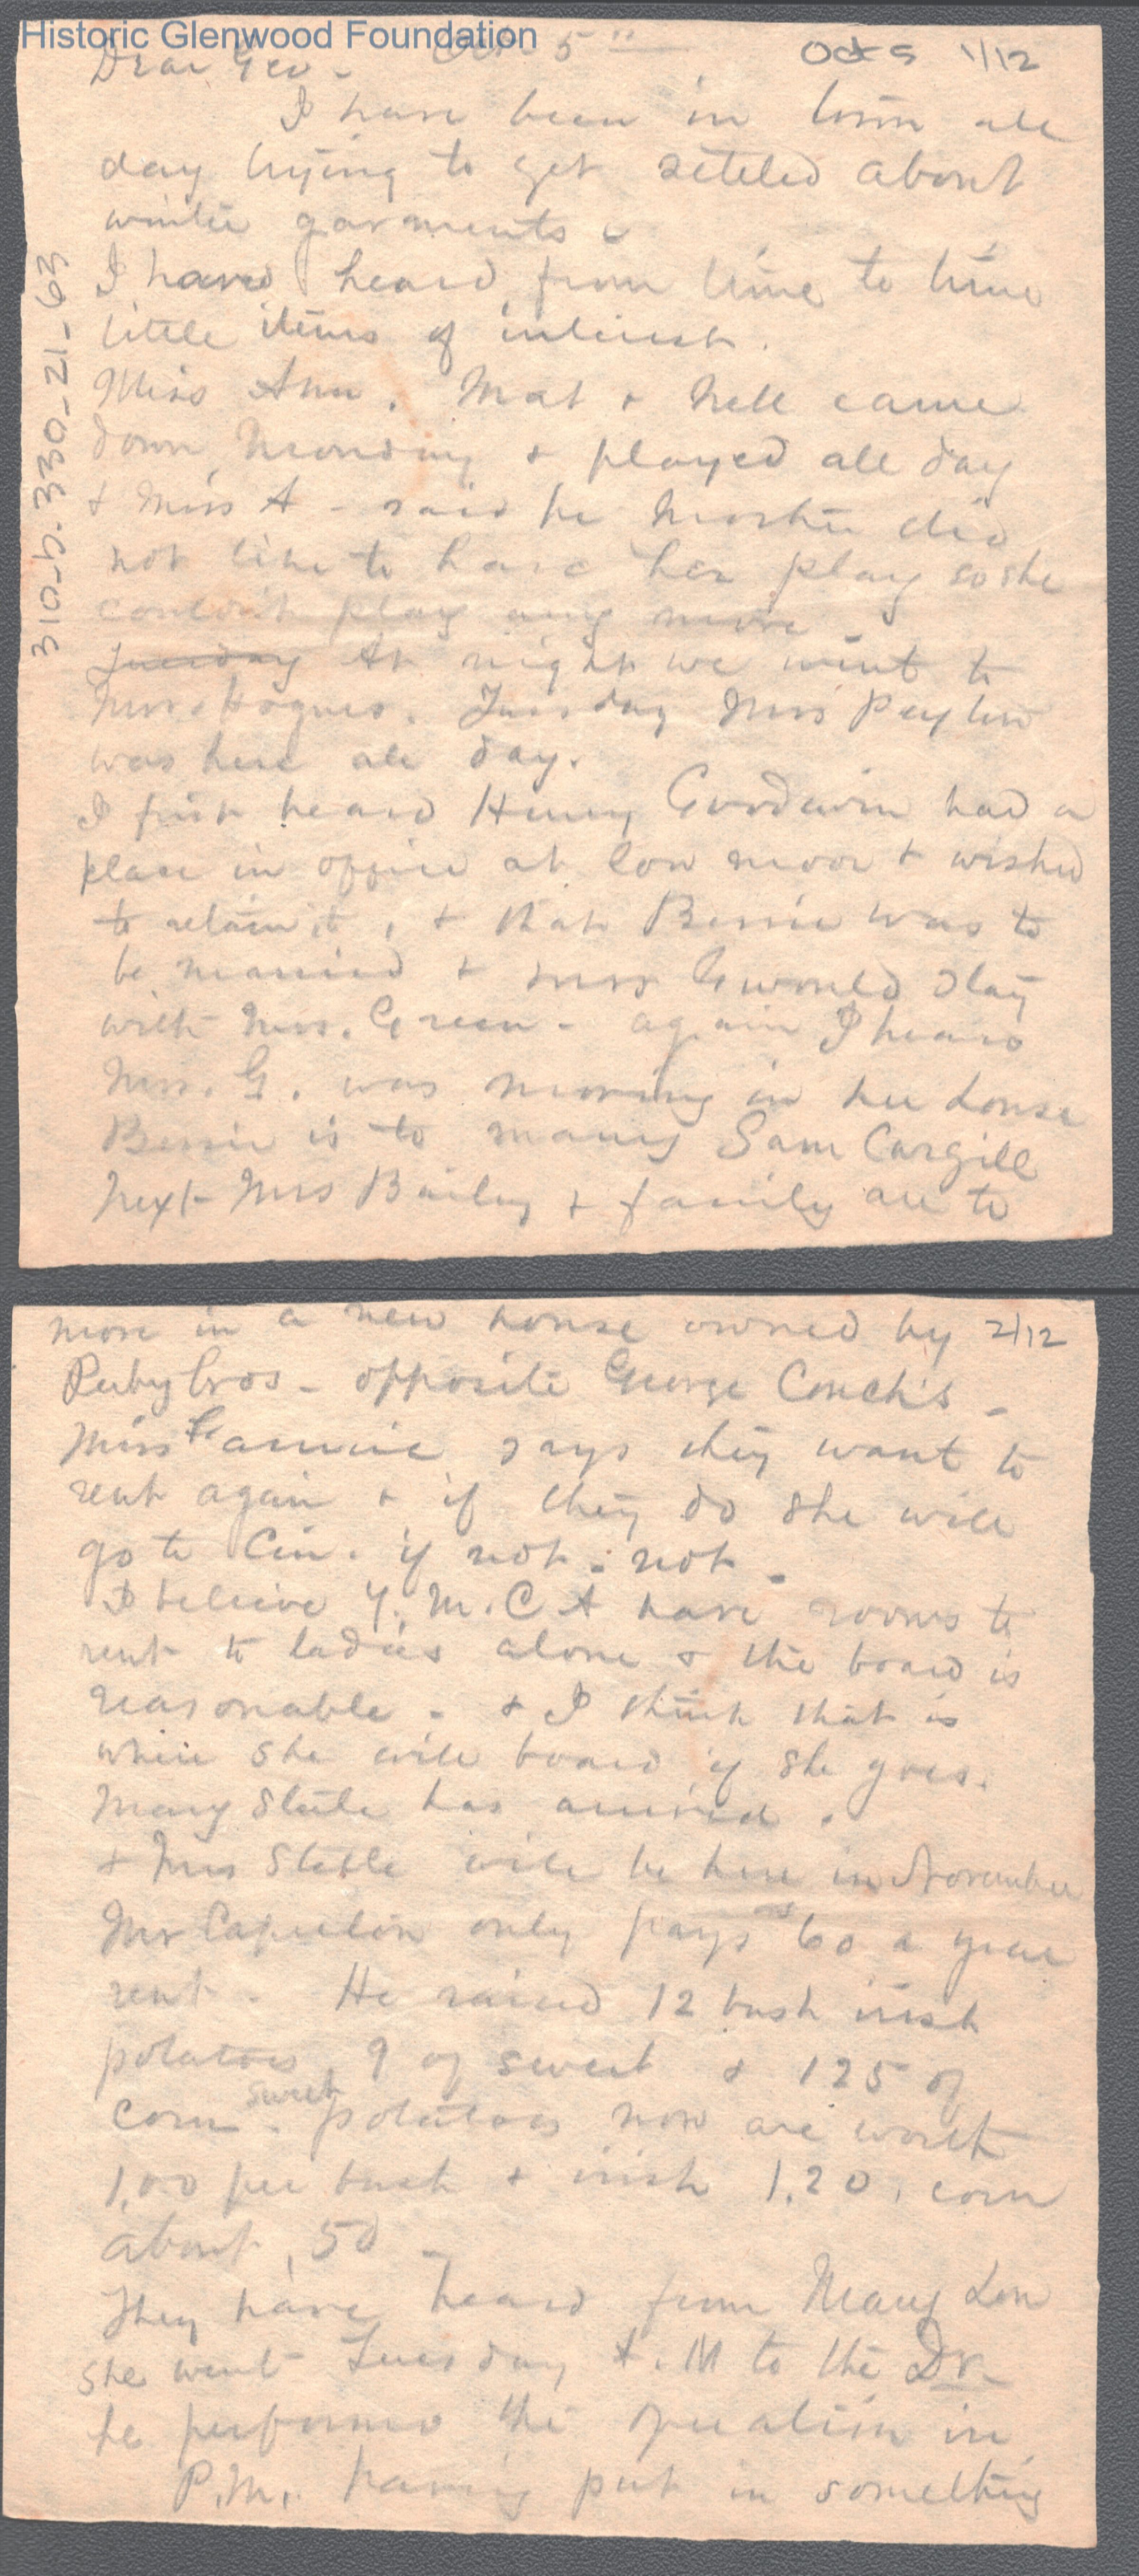 Historic Glenwood Foundation
Dear Geo - Oct 5" Oct 5 1/12
I have been in town all
day trying to get setteled about
winter garments.
I have heard from time to time
little items of interest.
Miss Ann. Mat + Nell came
down Monday + played all day
+ Miss A - said he Mother did
not like to have her play so she
couldn't play any more -
Tuesday At night we went to
Mrs. Hogues. Tuesday Mrs Peyton
was here all day.
I first heard Henry Goodwin had a
place in office at Low moor + wished
to retain it, + that Bessie was to
be married + Mrs G would stay
with Mrs. Green - again I heard
Mrs. G. was moving in her house
Bessie is to marry Sam Cargill
Next Mrs Bailey + family are to
310_b.330_21_63
move in a new house owned by 2/12
Bros - opposite George Couch's -
Miss Fannie says they want to
rent again + if they do she will
go to Cin. if not - not -
I believe Y.M.C.A have rooms to
rent to ladies alone + the board is
reasonable - + I think that is
where she will board if she goes.
Mary Steele has arrived.
+ Mrs Steele will be here in November
Mr Caperton only pays 60 a year
rent - He raised 12 bush irish
potatoes, 9 of sweet + 125 of
corn - sweet potatoes now are worth
1.00 per bush + irish 1.20, corn
about .50 -
They have heard from Mary Lou
she went Tuesday A.M to the Dr-
he performed the opeation in
P.M. having put in something